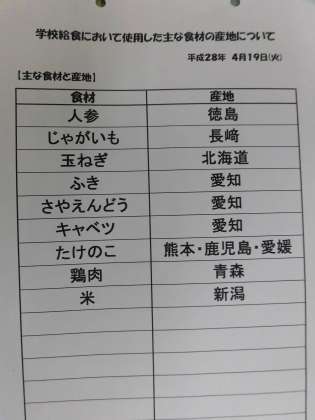 学校給食において使用した主な食材の産地について
平成28年 4月19日(火)
【主な食材と産地】
食材 産地
人参 徳島
じゃがいも 長崎
玉ねぎ 北海道
ふき 愛知
さやえんどう 愛知
キャベツ 愛知
たけのこ 熊本・鹿児島・愛媛
鶏肉 青森
米 新潟